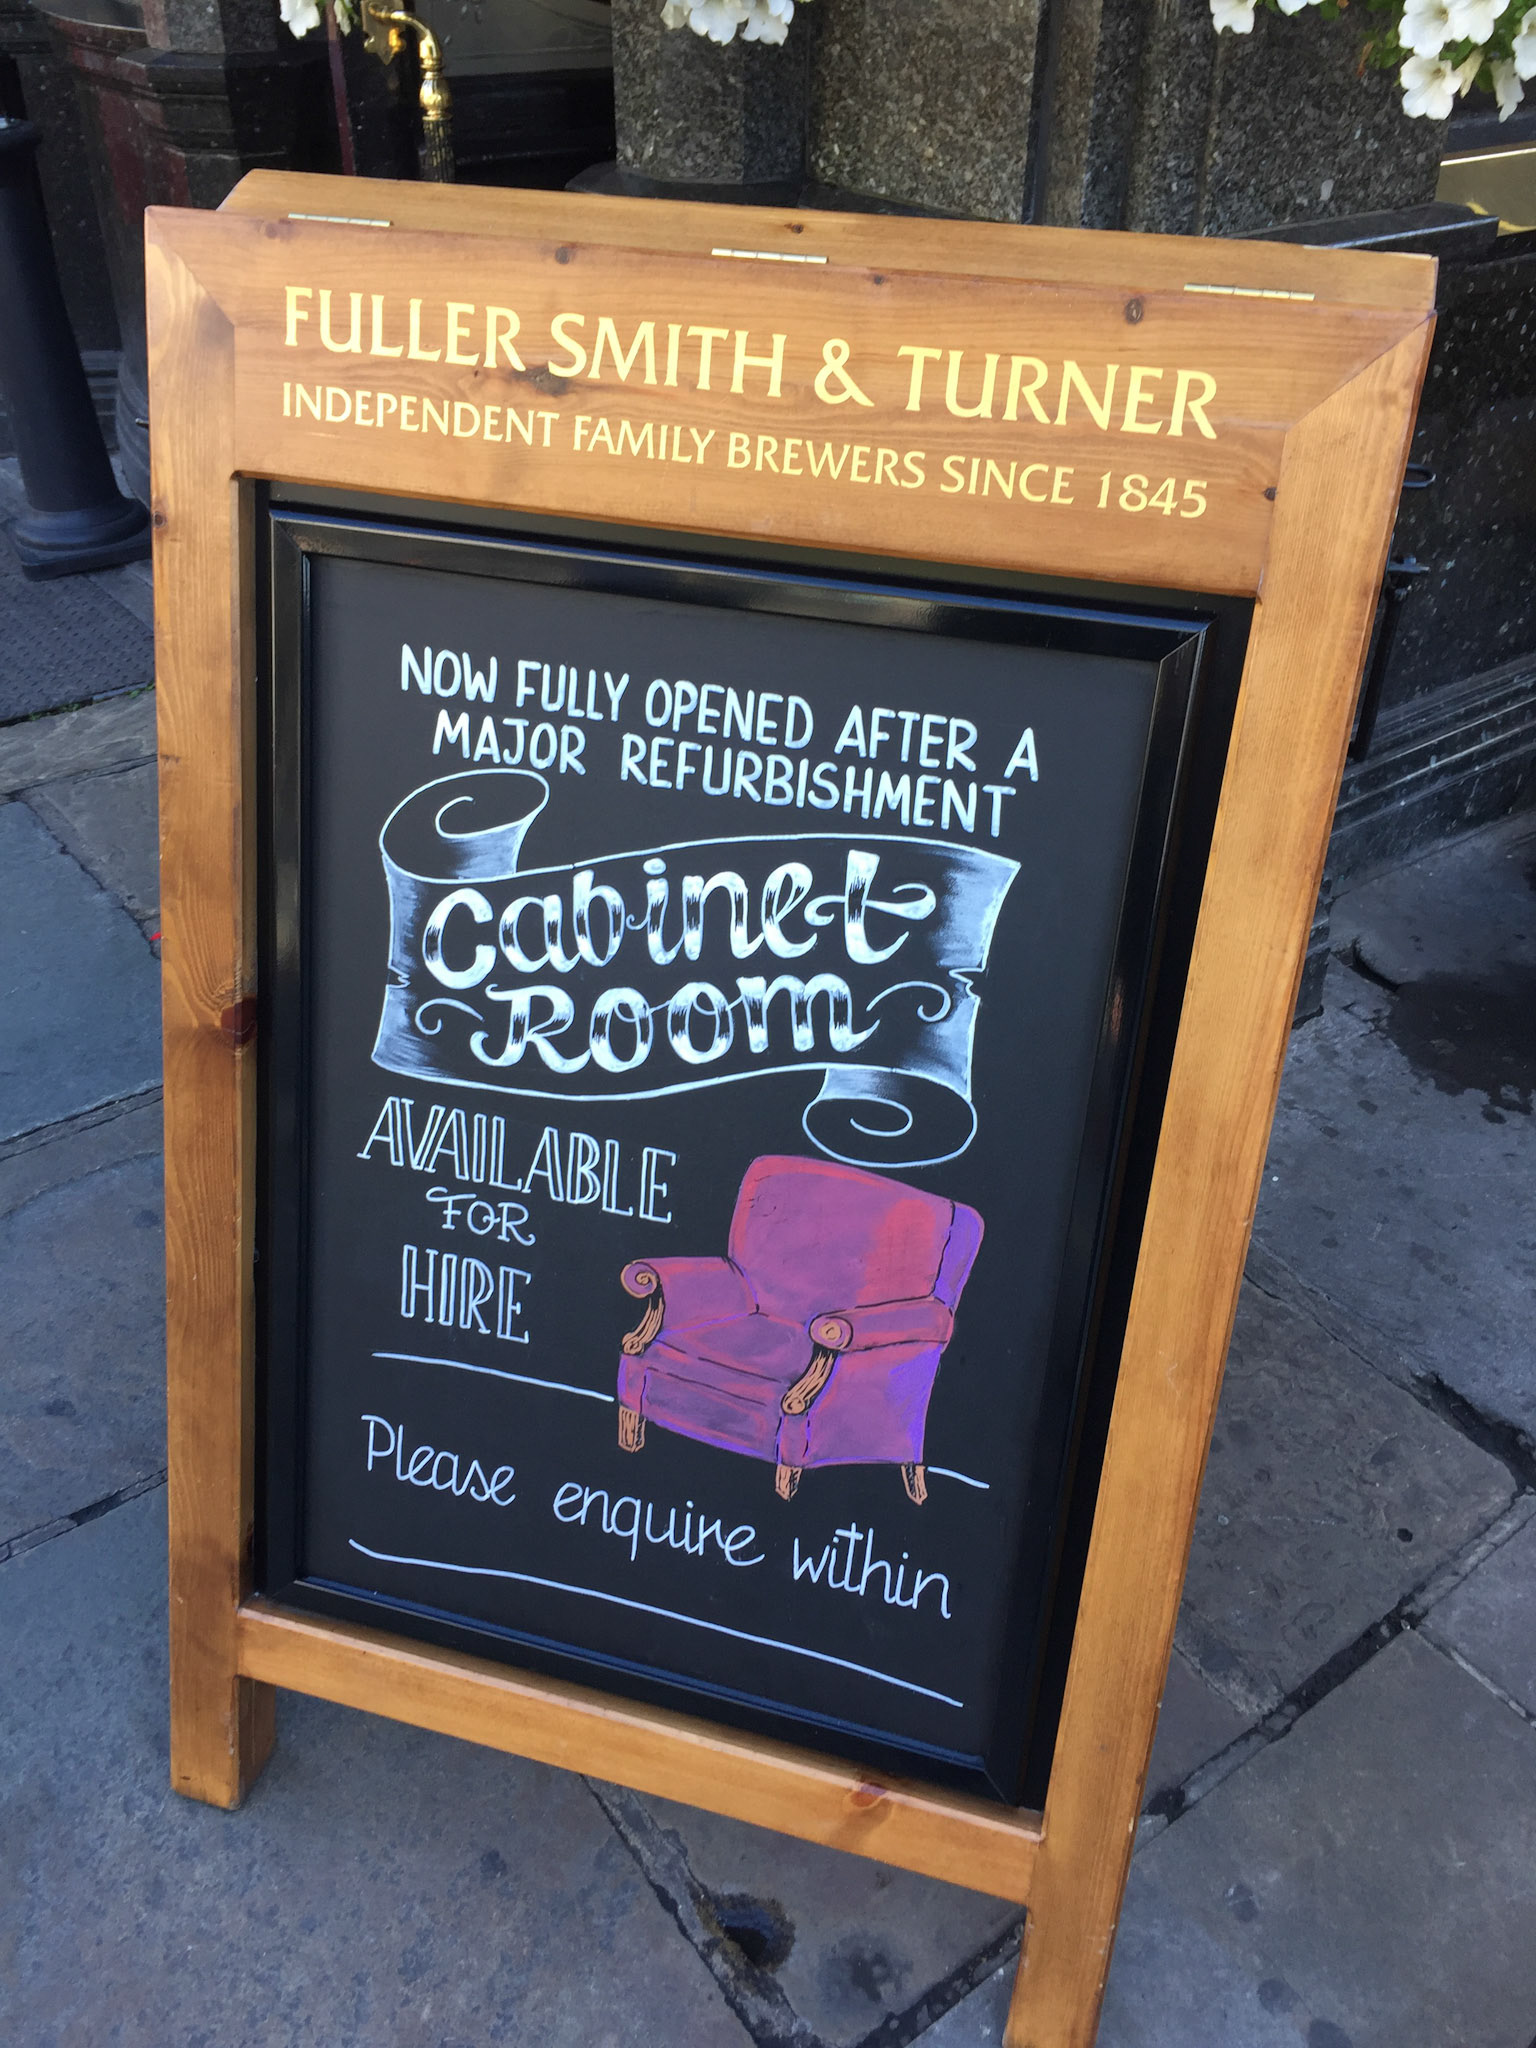 FULLER SMITH & TURNER
INDEPENDENT FAMILY BREWERS SINCE 1845
NOW FULLY OPENED AFTER A
MAJOR REFURBISHMENT
Cabinet
Room
AVAILABLE
FOR
HIRE
Please enquire within